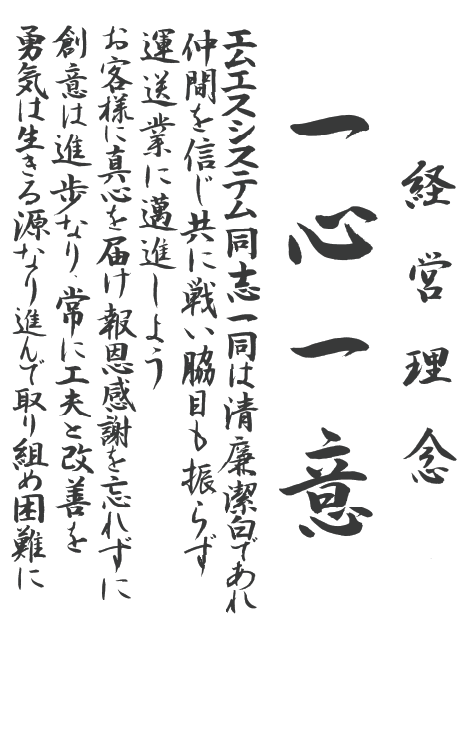 経営理念
一心一意
エムエスシステム同志一同は清廉潔白であれ
仲間を信じ共に戦い脇目も振らず
運送業に邁進しよう
お客様に真心を届け報恩感謝を忘れずに
創意は進歩なり常に工夫と改善を
勇気は生きる源なり進んで取り組め困難に